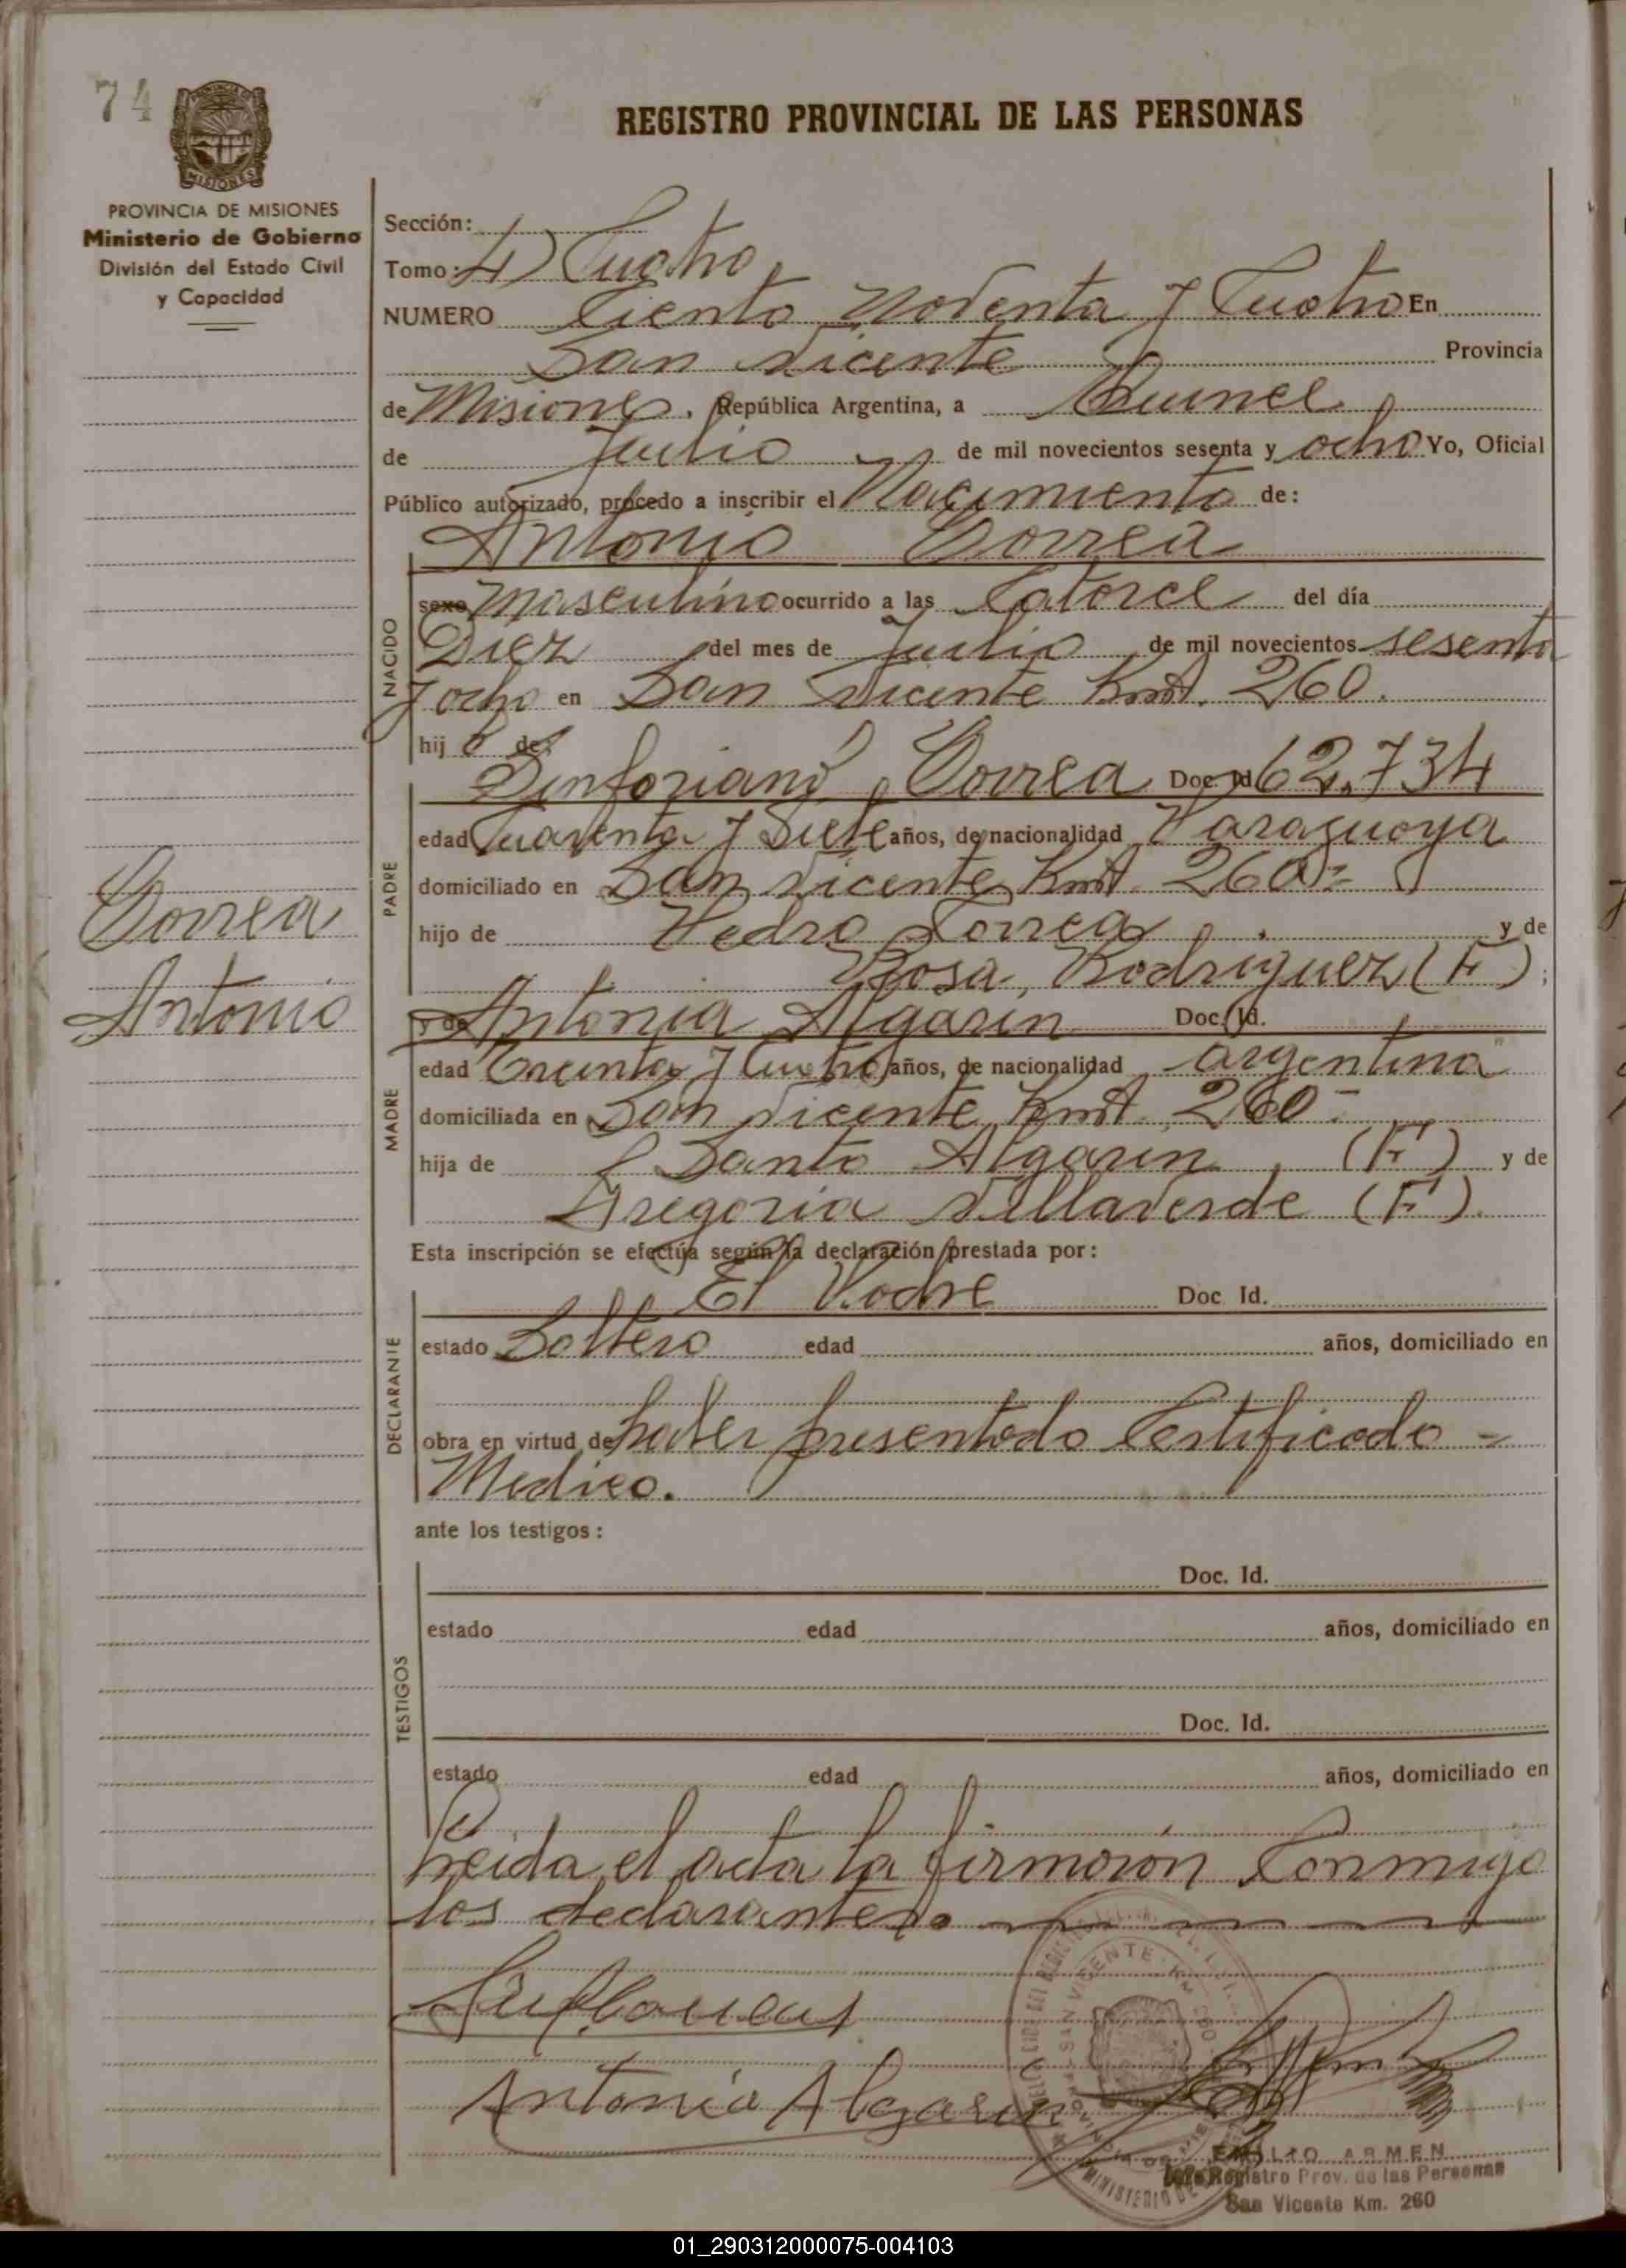 74
REGISTRO PROVINCIAL DE LAS PERSONAS
PROVINCIA DE MISIONES
Ministerio de Gobierno
División del Estado Civil
y Capacidad
Sección:
Tomo: 4) Cuatro
NUMERO Ciento Noventa y Cuatro En
San Vicente Provincia
de Misiones. República Argentina, a Quince
de Julio de mil novecientos sesenta y ocho Yo, Oficial
Público autorizado, procedo a inscribir el Nacimiento de:
Antonio Correa
NACIDO
sexo Masculino ocurrido a las Catorce del día
Diez del mes de Julio de mil novecientos sesenta
y ocho en San Vicente Kmt. 260.
hij o de:
Sinforiano Correa Doc. Id. 62.734
PADRE
edad Cuarenta y Siete años, de nacionalidad Paraguaya
domiciliado en San Vicente Kmt. 260=
hijo de Pedro Correa y de
Rosa Rodriguez (F);
Correa
Antonio
y de Antonia Algarin Doc. Id.
MADRE
edad Treinta y Cuatro años, de nacionalidad argentina
domiciliada en San Vicente Kmt. 260-
hija de Santo Algarin (F) y de
Gregoria Villaverde (F).
Esta inscripción se efectúa según la declaración prestada por:
DECLARANTE
El Padre Doc. Id.
estado Soltero edad años, domiciliado en
obra en virtud de haber presentado Certificado =
Medico.
ante los testigos:
TESTIGOS
Doc. Id.
estado edad años, domiciliado en
Doc. Id.
estado edad años, domiciliado en
Leida el acta la firmaron Conmigo
los declarantes.
Antonia Algarin
SAN VICENTE - KM 260
EMILIO ARMEN
Jefe Registro Prov. de las Personas
San Vicente Km. 260
01_290312000075-004103